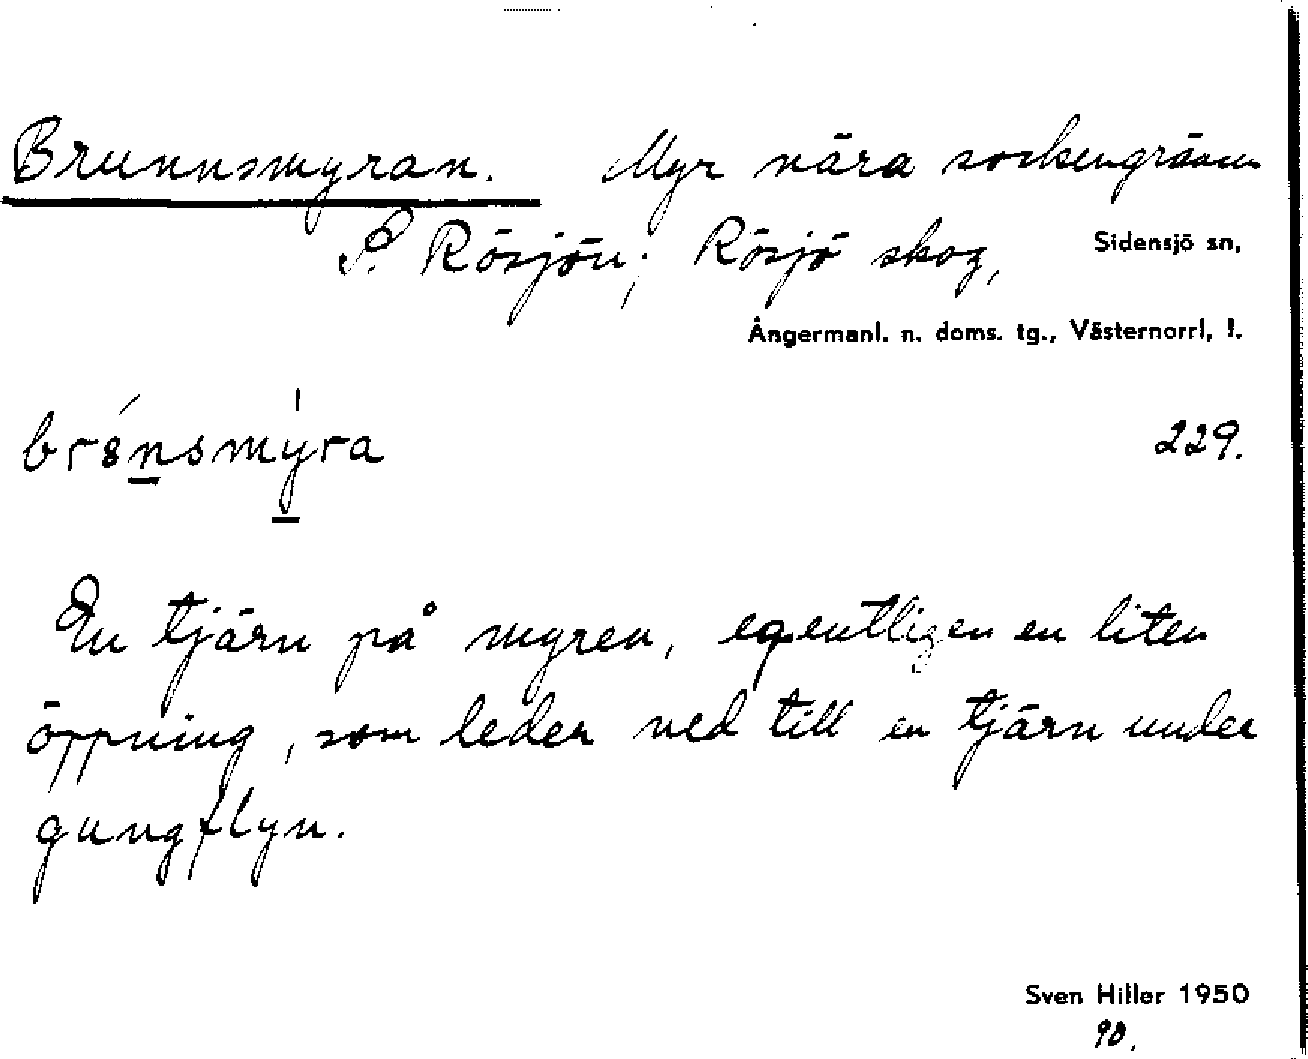 Brunnsmyran. Myr nära sockengränsen
S. Rösjön; Rösjö skog, Sidensjö sn,
Ångermanl. n. doms. tg., Västernorrl, l.
229.
En tjärn på myren, egentligen en liten
öppning, som leder ned till en tjärn under
gungflyn.
Sven Hiller 1950
90.